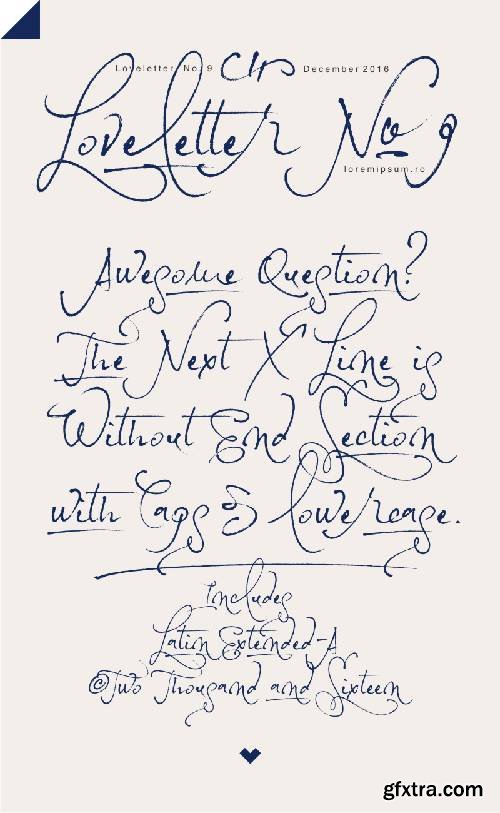 Loveletter No. 9 December 2016
Loveletter No 9
loremipsum.ro
Awesome Question?
The Next X Line is
Without End Section
with Caps & lowercase.
Includes
Latin Extended-A
©Two Thousand and Sixteen
gfxtra.com